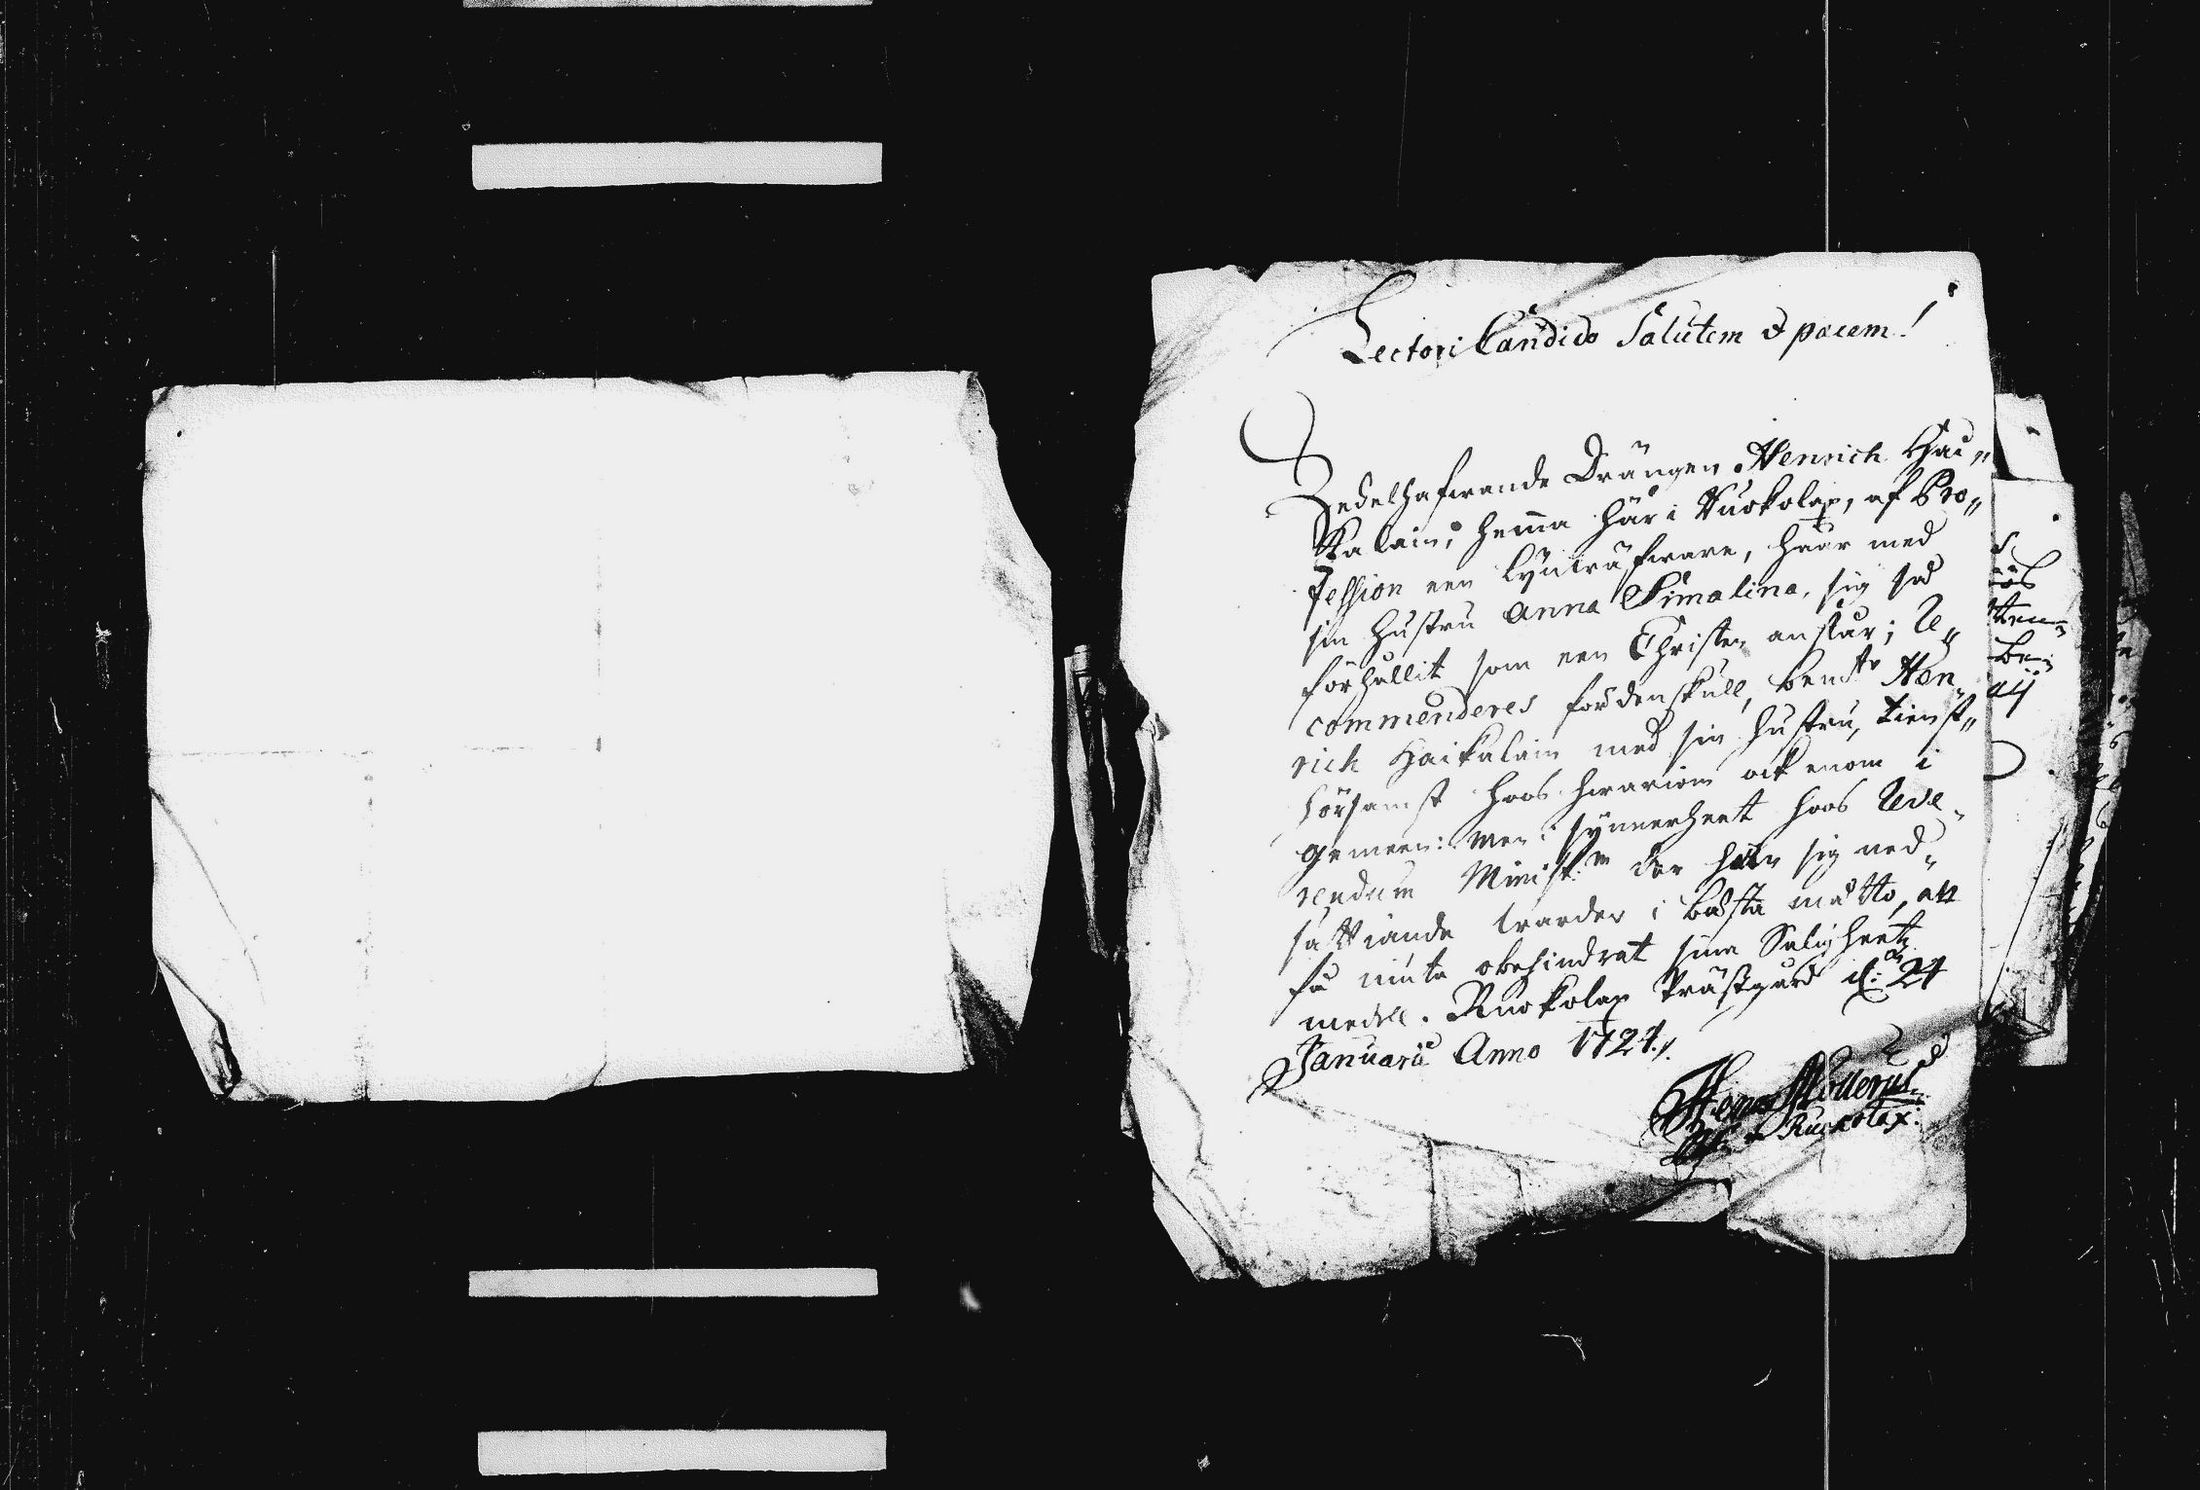 Lectori Candido Salutem & pacem!
Zedelhafwande Drängen Henrich Hai„
kalain, hema här i Ruokolax, af Pro„
fession een Skräfware, haar med
sin hustru Anna Simalina, sig så
förhållit som een Christen anstår; Re„
commenderes fördenskull, bemte Hen
rich Haikalain med sin hustru, tienst„
hörsamst hoos hwariom ock enom i
gemeen: men i synnerheet hoos Reve„
rendum Minist:m der han sig ned„
sättiande warder i bästa måtto, att
få niuta obehindrat sina Saligheetz
medell. Ruokolax Prästgård d: 24
Januarii Anno 1724.
Henr Mollerus
Ruokolax